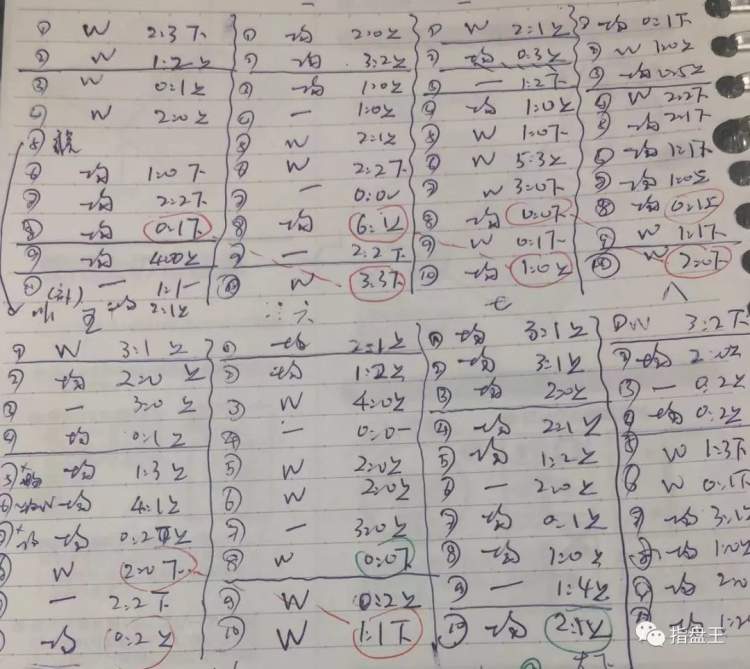 ① W 2:3下
② W 1:2上
③ W 0:1上
④ W 2:0上
⑤
⑥ 均 1:0下
⑦ 均 2:2下
⑧ 均 0:1下
⑨ 均 4:0上
⑩ 一 1:1一
2:1上
① 均 2:0上
② 均 3:2上
③ 均 1:0上
④ 一 1:0上
⑤ W 2:1上
⑥ W 2:2下
⑦ 一 0:0
⑧ 均 6:1上
⑨ 一 2:2下
⑩ W 3:3下
① W 2:1上
② 均 0:3上
③ 一 1:2下
④ 均 1:0上
⑤ W 1:0下
⑥ W 5:3上
⑦ W 3:0下
⑧ 均 0:0下
⑨ W 0:1下
⑩ 均 1:0上
七
① 均 0:1下
② W 1:0上
③ 均 0:5上
④ W 2:2下
⑤ 均 2:1下
⑥ 均 1:1下
⑦ 均 1:0上
⑧ 均 0:1上
⑨ W 1:1下
⑩ W 2:0下
八
① W 3:1上
② 均 2:0上
③ 一 3:0上
④ 均 0:1上
⑤ 均 1:3上
⑥ 均 4:1上
⑦ 均 0:2上
W 2:0下
一 2:2下
均 0:2上
六
① 均 2:1上
② 均 1:2上
③ W 4:0上
④ 一 0:0一
⑤ W 2:0上
⑥ W 2:0上
⑦ 一 3:0上
⑧ W 0:0下
⑨ W 0:2上
⑩ W 1:1下
① 均 3:1上
② 均 3:1上
③ 均 2:0上
④ 均 2:1上
⑤ 均 1:2上
⑥ 一 2:0上
⑦ 均 0:1上
⑧ 均 1:0上
⑨ 一 1:4上
⑩ 均 2:1上
① W 3:2下
② 均 2:0上
③ 一 0:2上
④ 均 0:2上
⑤ W 1:3下
⑥ W 0:1下
⑦ 均 3:1
⑧ 均 1:0上
⑨ 均 2:0
均 1:2
指盘王